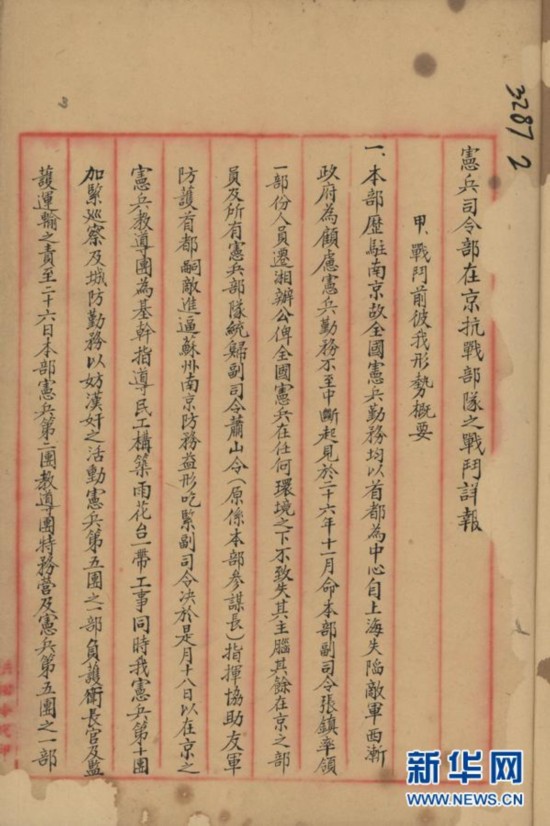 3287 2
憲兵司令部在京抗戰部隊之戰鬥詳報
甲、戰鬥前彼我形勢概要
一、本部歷駐南京故全國憲兵勤務均以首都為中心自上海失陷敵軍西漸
政府為顧慮憲兵勤務不至中斷起見於二十六年十一月命本部副司令張鎮率領
一部份人員遷湘辦公俾全國憲兵在任何環境之下不致失其主腦其餘在京之部
員及所有憲兵部隊統歸副司令蕭山令(原係本部參謀長)指揮協助友軍
防護首都嗣敵進逼蘇州南京防務益形吃緊副司令決於是月十八日以在京之
憲兵教導團為基幹指導民工構築雨花台一帶工事同時我憲兵第十團
加緊巡察及城防勤務以妨漢奸之活動憲兵第五團之一部負護衛長官及監
護運輸之責至二十六日本部憲兵第二團教導團特務營及憲兵第五團之一部
新华网
WWW.NEWS.CN